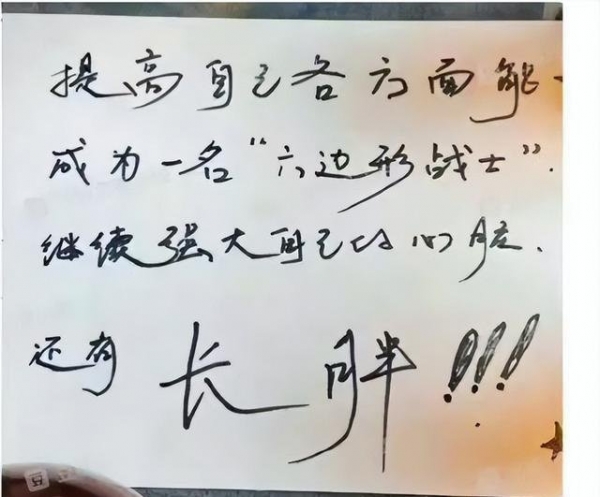 提高自己各方面能
成为一名“六边形战士”.
继续强大自己的心脏.
还有 长胖!!!
豆